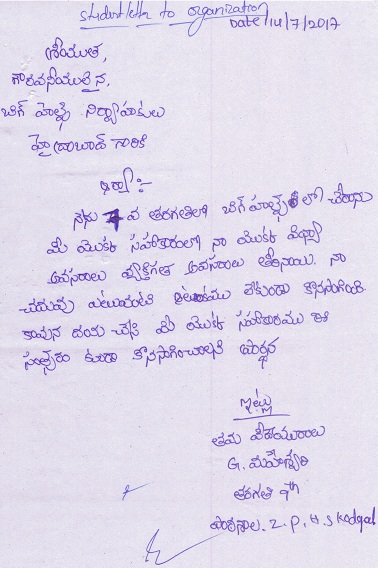 student letter to organization
Date/14/7/2017
శ్రీయుత,
గౌరవనీయులైన,
బిగ్ హెల్ప్ నిర్వాహకులు
హైద్రాబాద్ గారికి
ఆర్యా :-
నేను 7వ తరగతిలో బిగ్ హెల్ప్ లో చేరాను
మీ యొక్క సహకారంలో నా యొక్క విద్యా
అవసరాలు వ్యక్తిగత అవసరాలు తీరినాయి. నా
చదువు ఎటువంటి ఆటంకము లేకుండా కొనసాగింది.
కావున దయ చేసి మీ యొక్క సహకారము ఈ
సంత్సరం కుడా కొనసాగించాలని ప్రార్ధన
ఇట్లు
తమ విధేయురాలు
G. మహేశ్వరి
తరగతి 9th
పాఠశాల. Z. P. H. S Kodgal